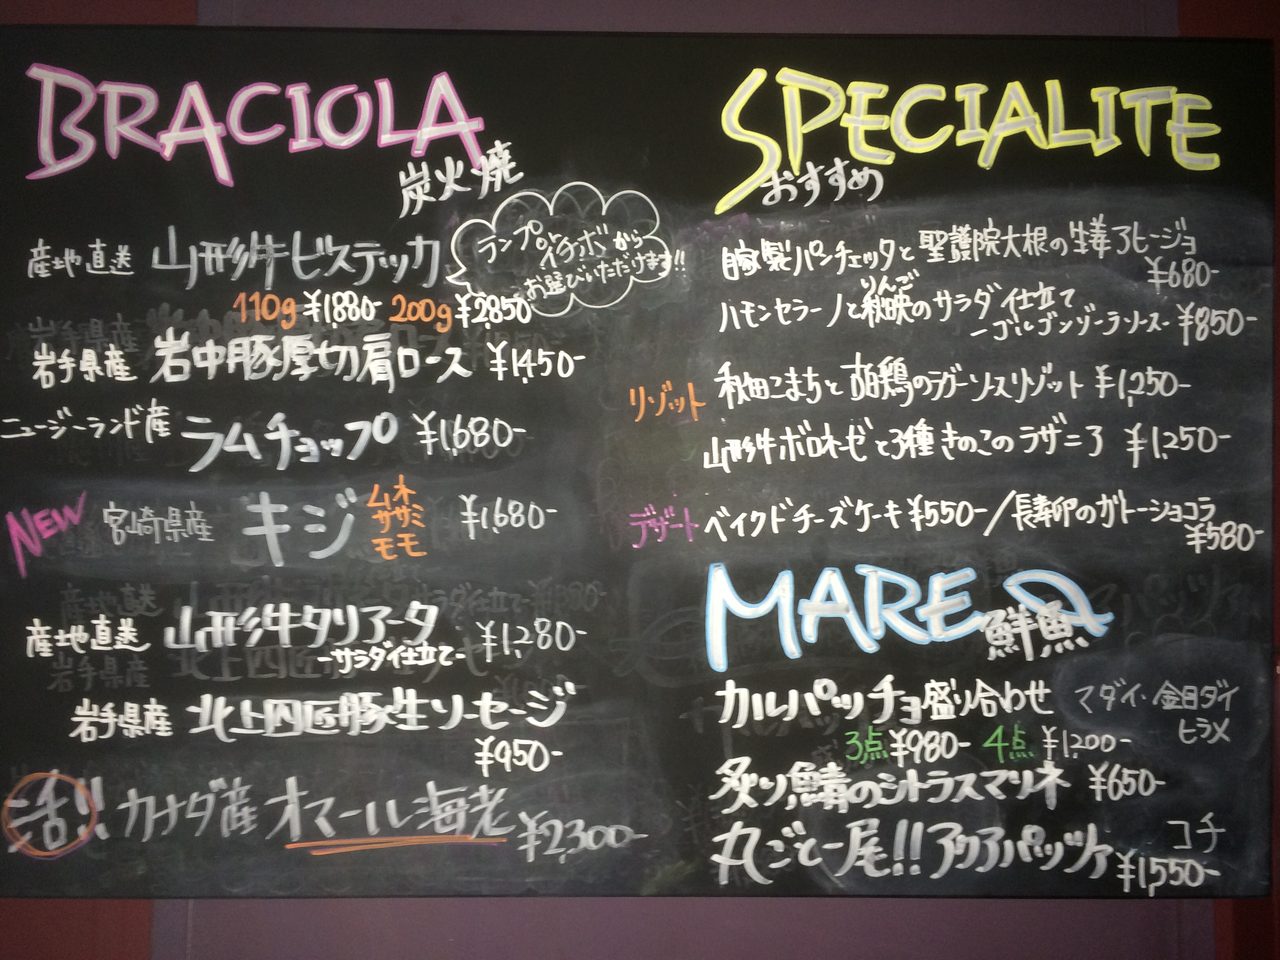 BRACIOLA
炭火焼
産地直送 山形牛ビステッカ
ランプorイチボから
お選びいただけます!!
110g ¥1,880- 200g ¥2,850
岩手県産 岩中豚厚切肩ロース ¥1,450-
ニュージーランド産 ラムチョップ ¥1,680-
NEW 宮崎県産 キジ ムネ ササミ モモ ¥1,680-
産地直送 山形牛タリアータ ¥1,280-
-サラダ仕立て-
岩手県産 北上四匠豚生ソーセージ
¥950-
活!! カナダ産 オマール海老 ¥2,300-
SPECIALITE
おすすめ
自家製パンチェッタと聖護院大根の生姜アヒージョ
¥680-
りんご
ハモンセラーノと秋映のサラダ仕立て
-ゴルゴンゾーラソース- ¥850-
リゾット 秋田こまちと 鶏のラグーソースリゾット ¥1,250-
山形牛ボロネーゼと3種きのこのラザニア ¥1,250-
デザート ベイクドチーズケーキ ¥550-/長寿卵のガトーショコラ
¥580-
MARE
鮮魚
カルパッチョ盛り合わせ マダイ・金目ダイ
ヒラメ
3点 ¥980- 4点 ¥1,200-
炙り鯖のシトラスマリネ ¥650-
丸ごと一尾!!アクアパッツァ コチ
¥1,550-